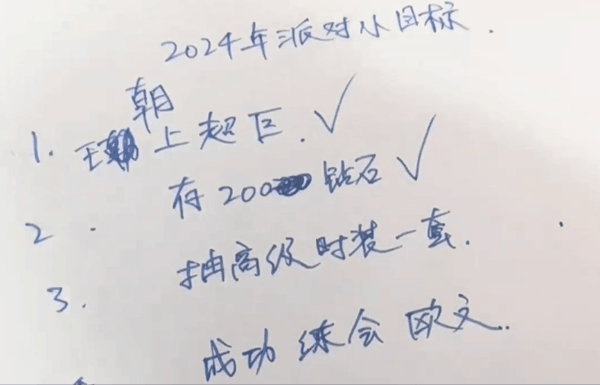 2024年派对小目标.
1. 王朝上超巨. ✓
2. 存200钻石 ✓
3. 抽高级时装一套.
成功练会欧文.